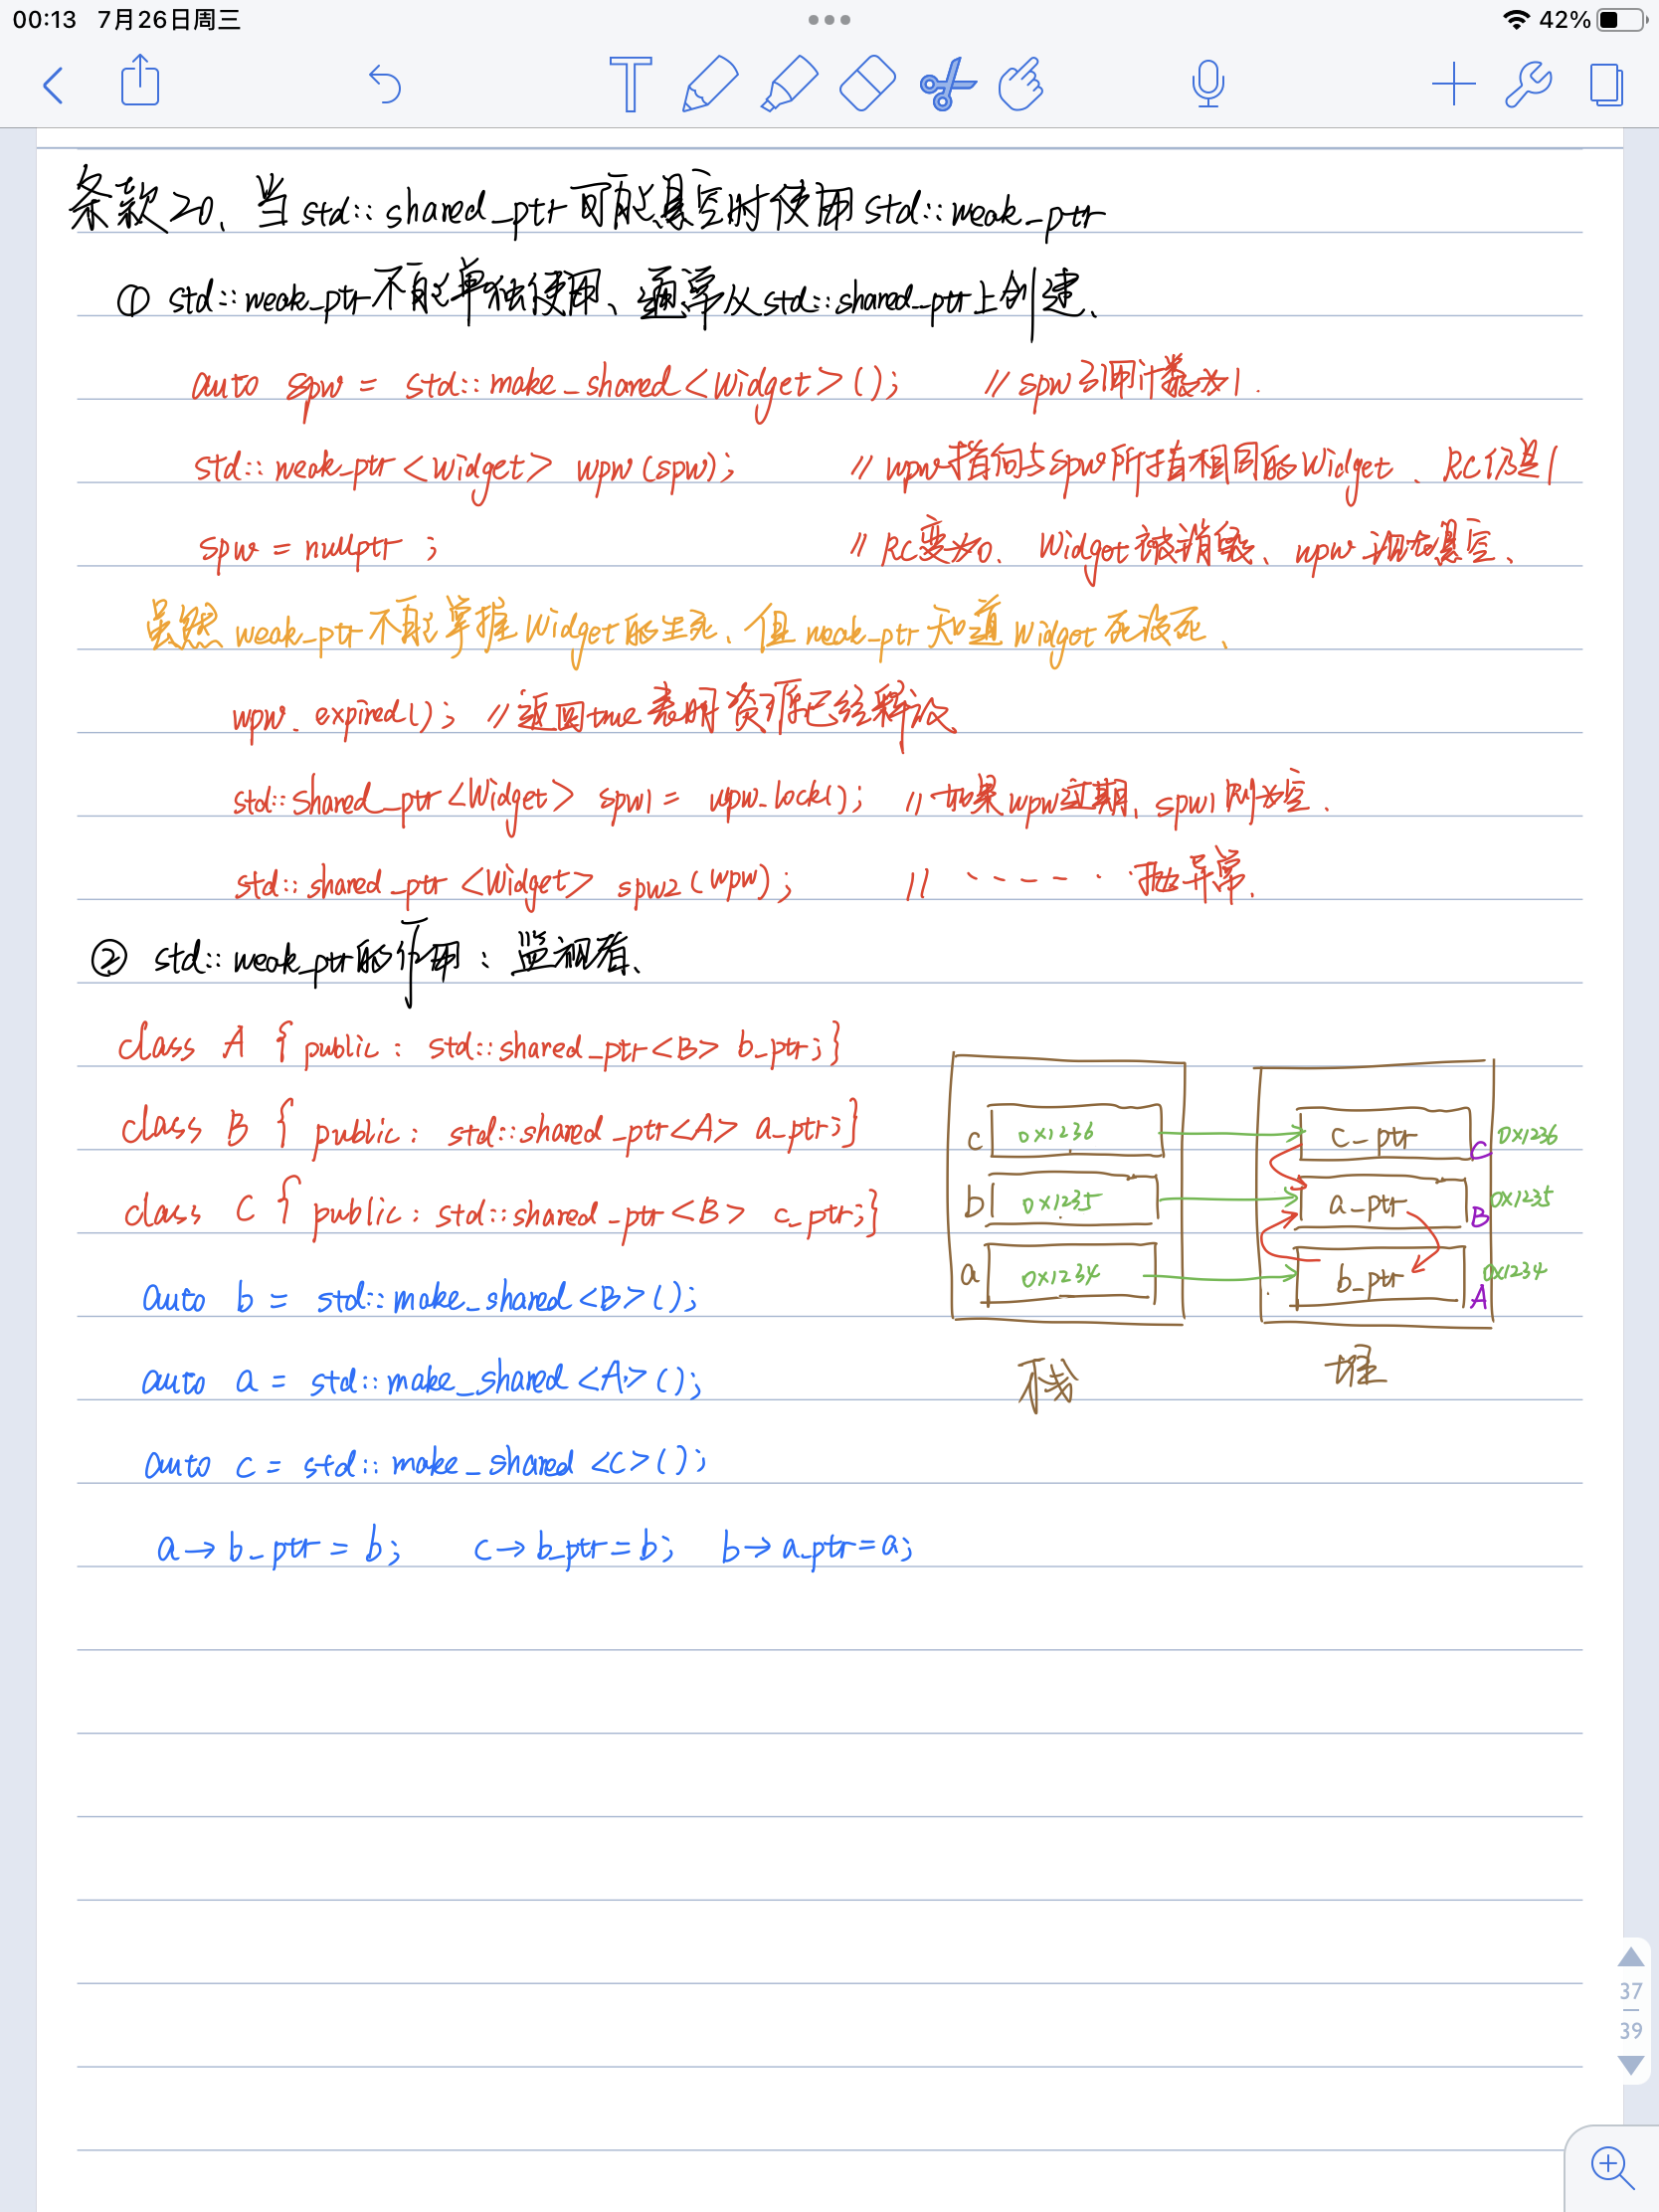 00:13 7月26日周三 42%
条款20、当std::shared_ptr可能悬空时使用std::weak_ptr
① std::weak_ptr不能单独使用、通常从std::shared_ptr上创建、
auto spw = std::make_shared<Widget>(); // spw引用计数为1.
std::weak_ptr<Widget> wpw(spw); // wpw指向与spw所指相同的Widget、RC仍是1
spw = nullptr ; // RC变为0、Widget被销毁、wpw现在悬空、
虽然weak_ptr不能掌握Widget的生死、但weak_ptr知道Widget死没死、
wpw.expired(); //返回true表明资源已经释放、
std::shared_ptr<Widget> spw1 = wpw.lock(); //如果wpw过期、spw1则为空.
std::shared_ptr<Widget> spw2(wpw); // ······抛异常.
② std::weak_ptr的作用：监视着、
class A { public: std::shared_ptr<B> b_ptr;}
class B { public: std::shared_ptr<A> a_ptr;}
class C { public: std::shared_ptr<B> c_ptr;}
auto b = std::make_shared<B>();
auto a = std::make_shared<A>();
auto c = std::make_shared<C>();
a→b_ptr = b; c→b_ptr = b; b→a_ptr = a;
c 0x1236 c_ptr C 0x1236
b 0x1235 a_ptr B 0x1235
a 0x1234 b_ptr A 0x1234
栈 堆
37
39